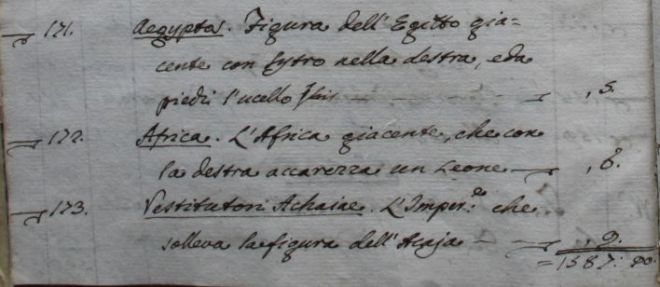 171. Aegyptos. Figura dell'Egitto gia=
cente con sytro nella destra, eda
piedi l'ucello Ibis — , 5.
172. Africa. L'Africa giacente, che con
la destra accarezza un Leone — , 6.
173. Restitutori Achaiae. L'Imper.re che
solleva la figura dell'Acaja — 9.
=1587: 90.